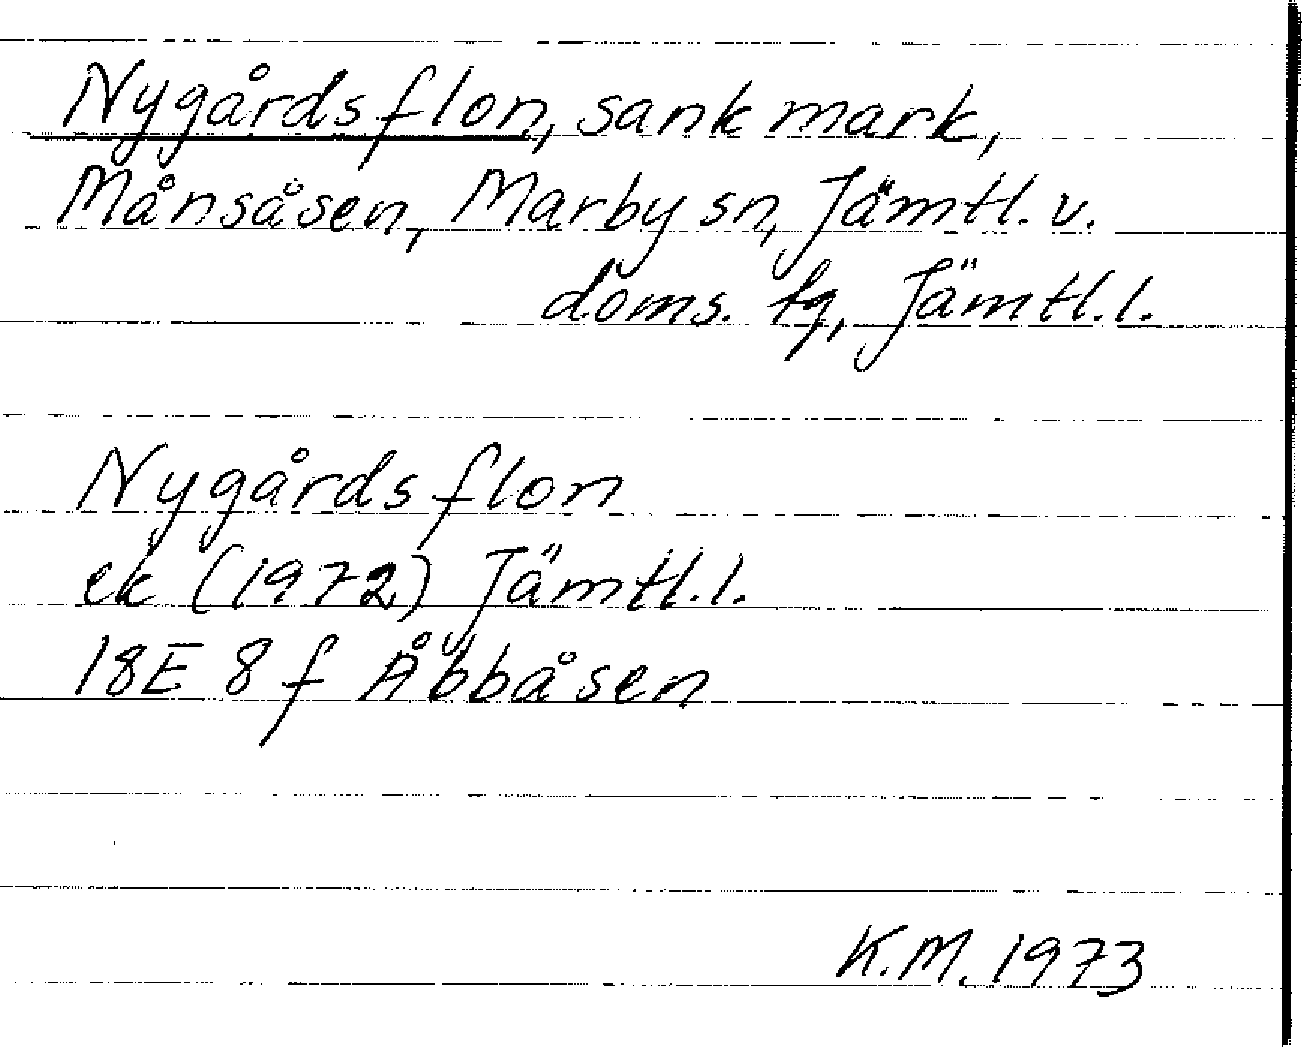 Nygårdsflon, sank mark,
Månsåsen, Marby sn, Jämtl. v.
doms. tg, Jämtl. l.
Nygårdsflon
ek (1972) Jämtl. l.
18E 8 f Åbbåsen
K.M. 1973